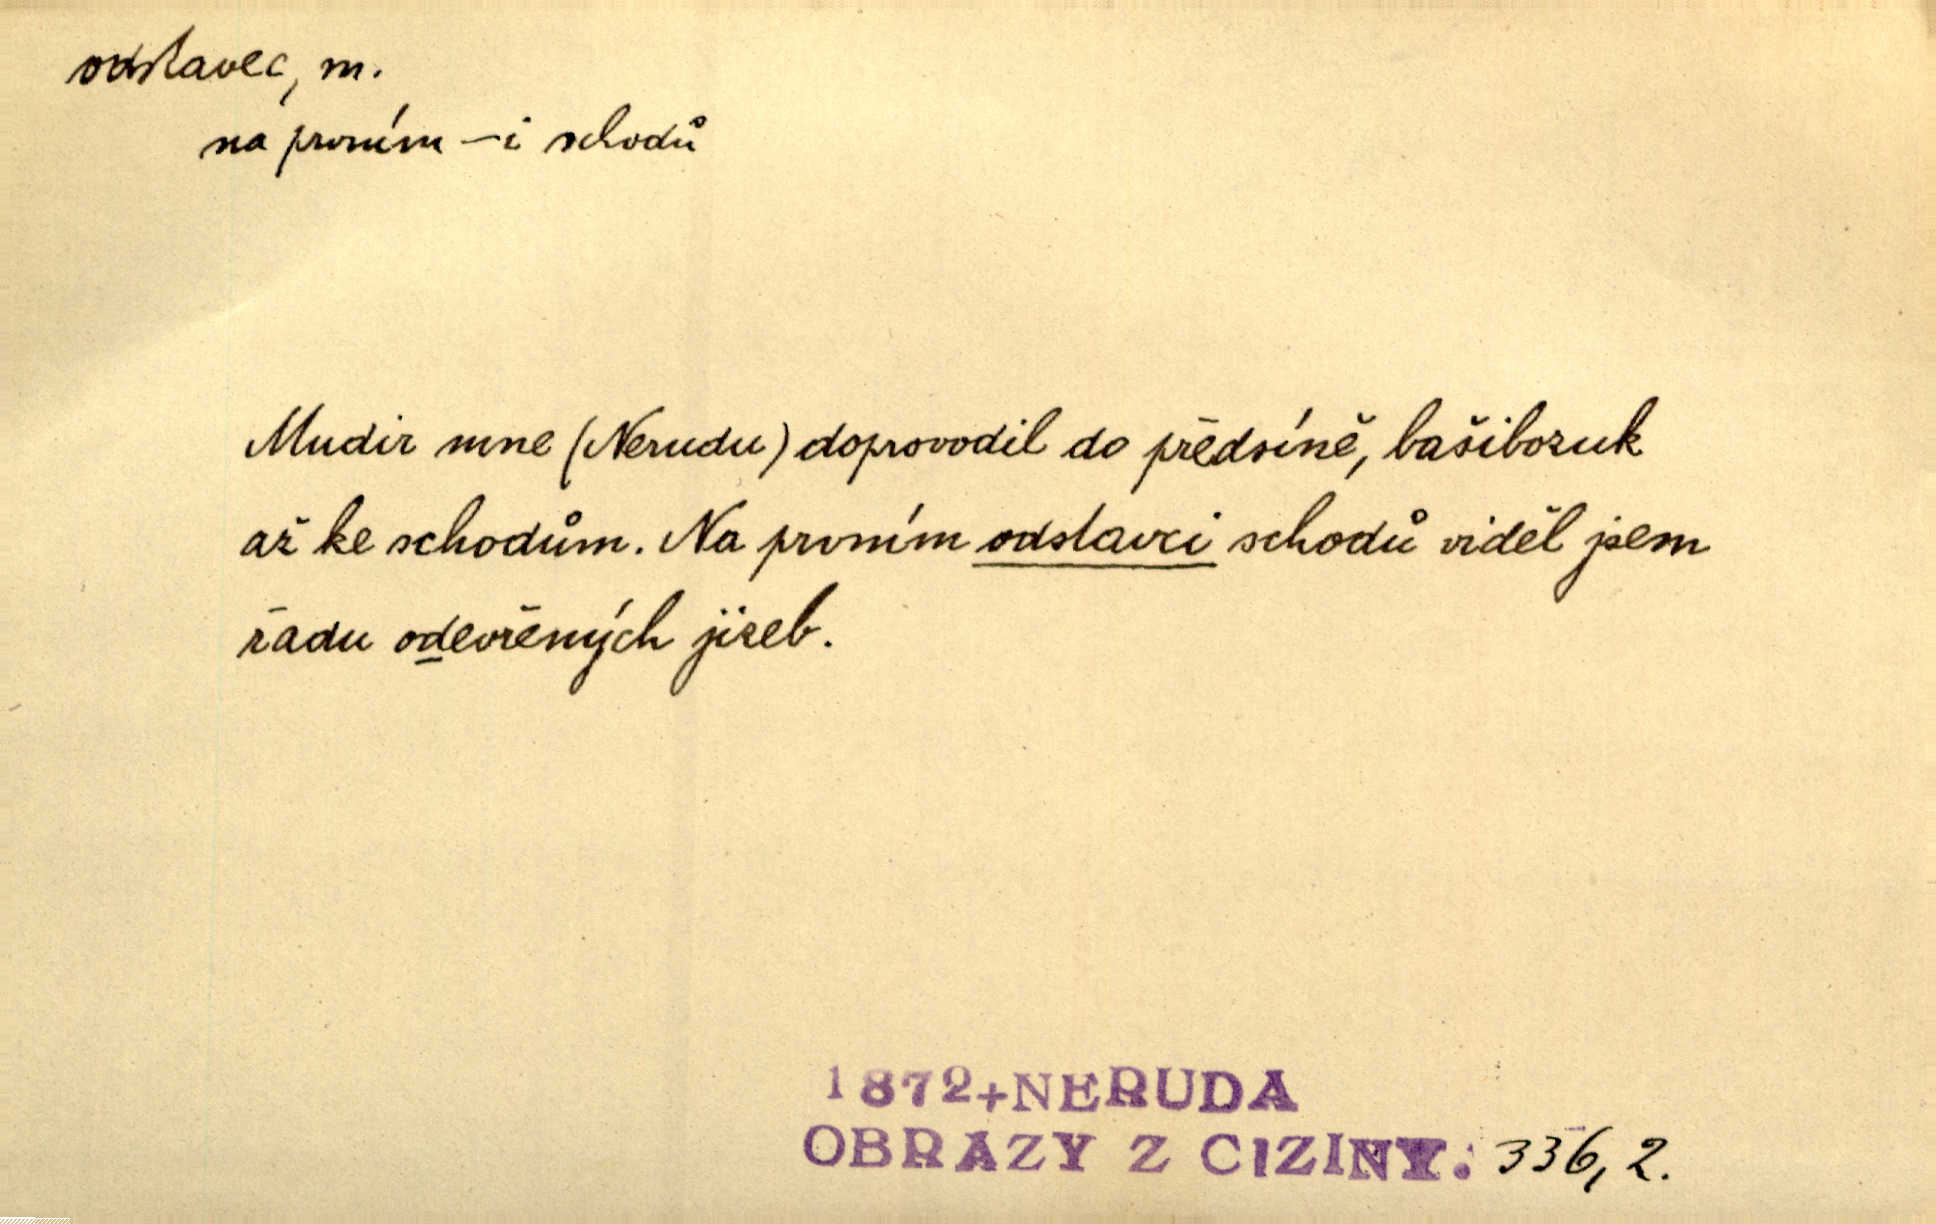 odstavec, m.
na prvním –i schodů
Mudir mne (Nerudu) doprovodil do předsíně, bašibozuk
až ke schodům. Na prvním odstavci schodů viděl jsem
řadu odevřených jizeb.
1872+NERUDA
OBRAZY Z CIZINY. 336, 2.